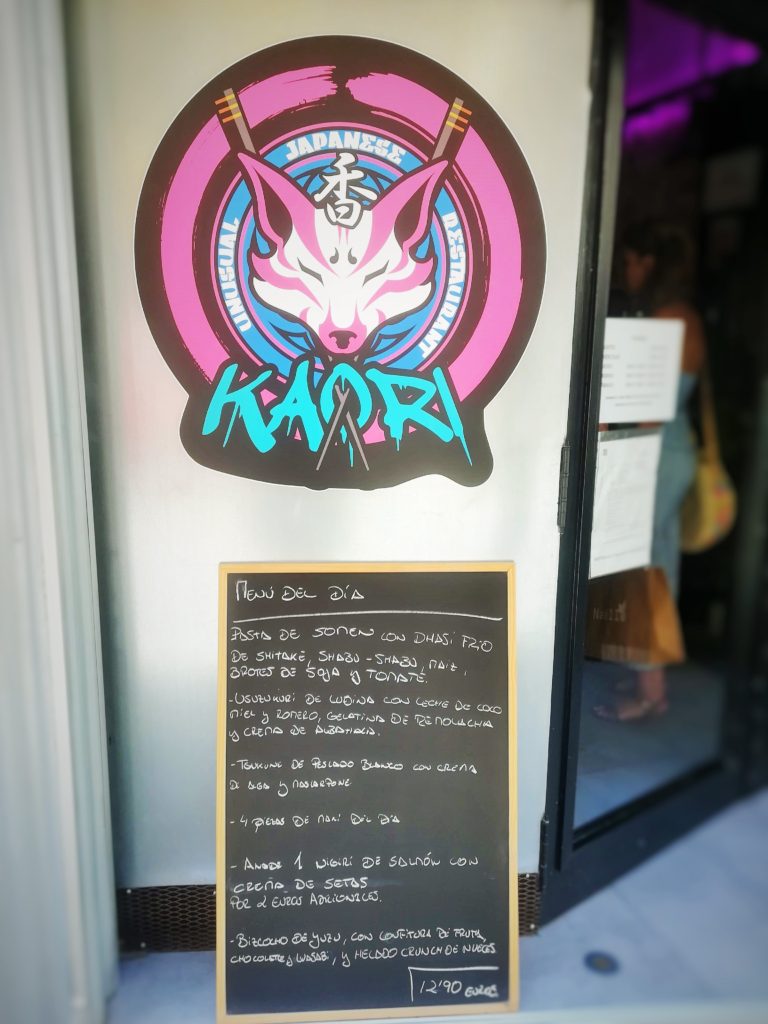 JAPANESE
香
UNUSUAL
RESTAURANT
KAORI
MENÚ DEL DÍA
PASTA DE SOMEN CON DHASI FRIO
DE SHITAKE, SHABU-SHABU, MAIZ,
BROTES DE SOJA Y TOMATE.
-USUZUKURI DE LUBINA CON LECHE DE COCO
MIEL Y ROMERO, GELATINA DE REMOLACHA
Y CREMA DE ALBAHACA.
-TSUKUNE DE PESCADO BLANCO CON CREMA
DE ALGA Y MASCARPONE
-4 PIEZAS DE MAKI DEL DÍA
-AÑADE 1 NIGIRI DE SALMÓN CON
CREMA DE SETAS
POR 2 EUROS ADICIONALES.
-BIZCOCHO DE YUZU, CON CONFITURA DE FRUTA,
CHOCOLATE Y WASABI, Y HELADO CRUNCH DE NUECES
12'90 EUROS